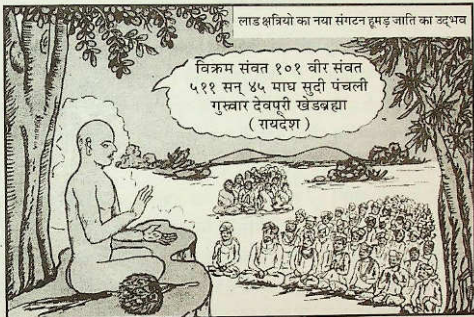 लाड क्षत्रियो का नया संगटन हूमड़ जाति का उद्भव
विक्रम संवत १०१ वीर संवत
५११ सन् ४५ माघ सुदी पंचली
गुरुवार देवपूरी खेडब्रह्मा
( रायदेश )